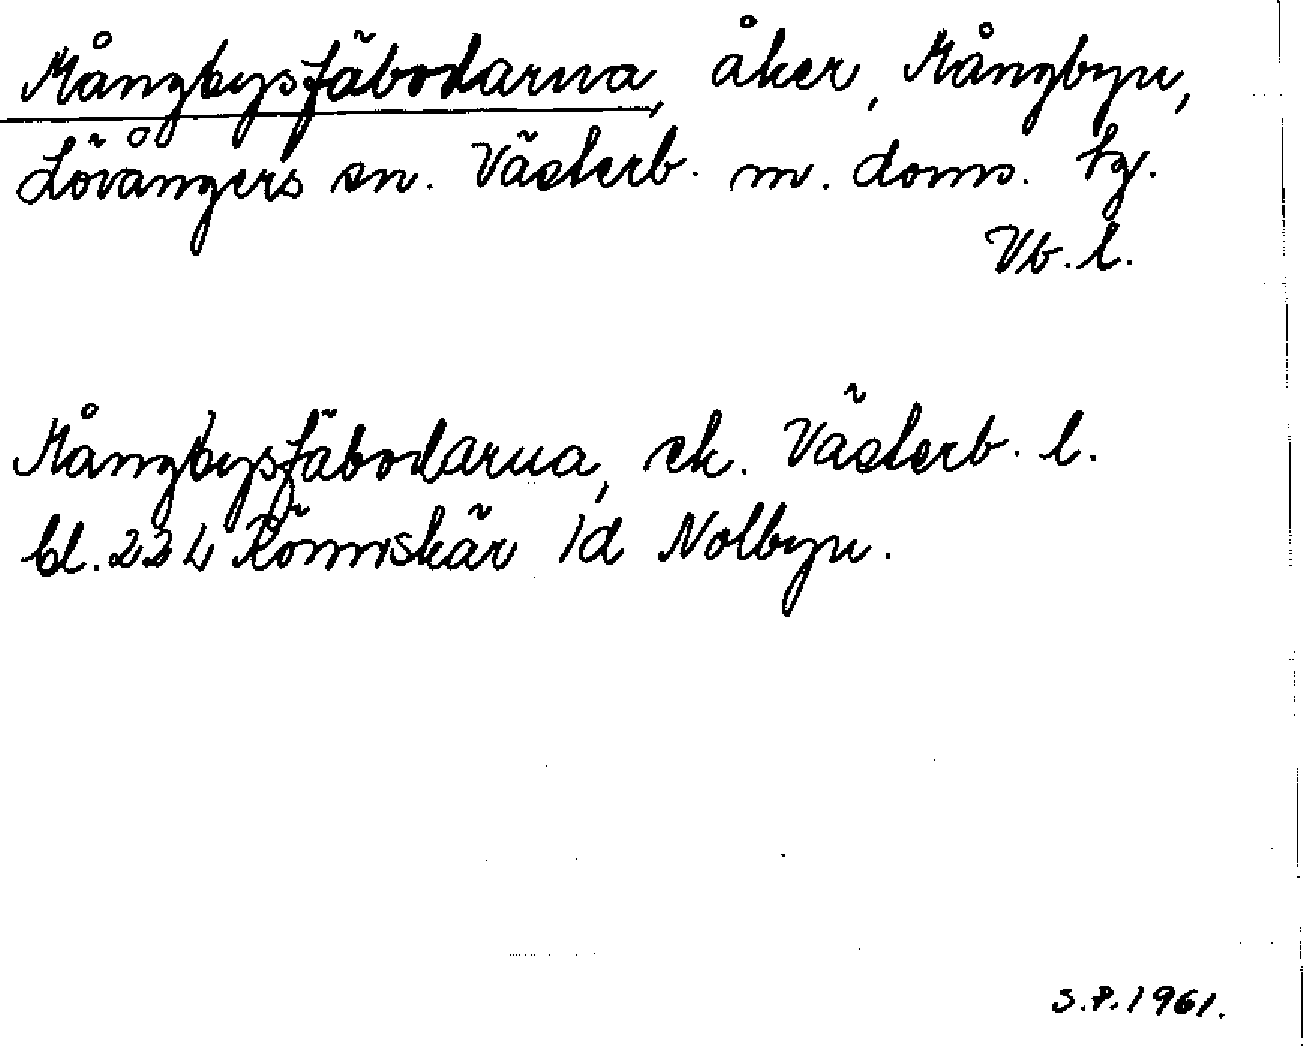 Mångbysfäbodarna, åker, Mångbyn,
Lövångers sn. Västerb. m. doms. tg.
Vb. l.
Mångbysfäbodarna, ek. Västerb. l.
bl. 22 L Rönnskär 1d Nolbyn.
S.P. 1961.